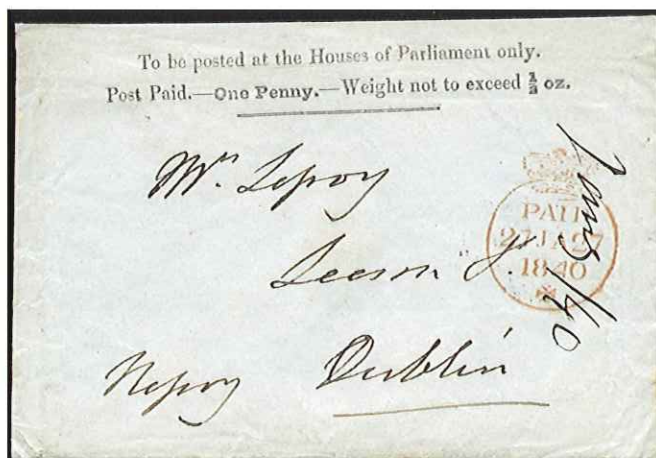 To be posted at the Houses of Parliament only.
Post Paid.—One Penny.—Weight not to exceed ½ oz.
Leeson St.
Dublin
PAID
27 JA 27
1840